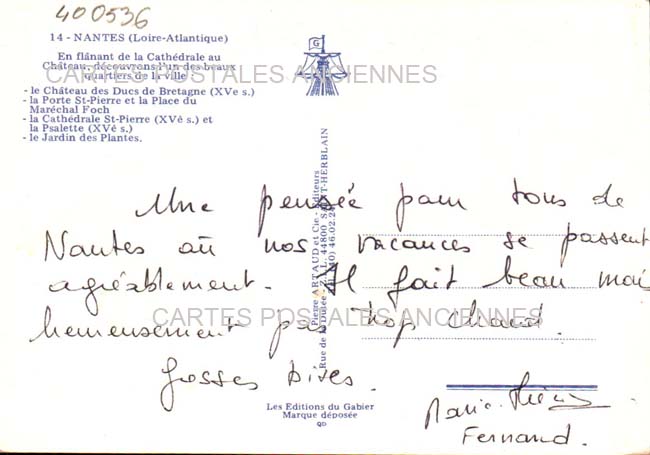 400536
14 - NANTES (Loire-Atlantique)
En flânant de la Cathédrale au
Château, découvrons l'un des beaux
quartiers de la ville
- le Château des Ducs de Bretagne (XVe s.)
- la Porte St-Pierre et la Place du
Maréchal Foch
- la Cathédrale St-Pierre (XVè s.) et
la Psalette (XVè s.)
- le Jardin des Plantes.
G
CARTES POSTALES ANCIENNES
Pierre ARTAUD et Cie - Editeurs
Rue de la Dutée - Z.I.L. 44800 SAINT-HERBLAIN
(40) 46.02.
Une pensée pour tous de
Nantes où nos vacances se passent
agréablement. Il fait beau mais
heureusement pas trop chaud.
CARTES POSTALES ANCIENNES
Grosses bises.
Marie-Thérèse
Fernand.
Les Editions du Gabier
Marque déposée